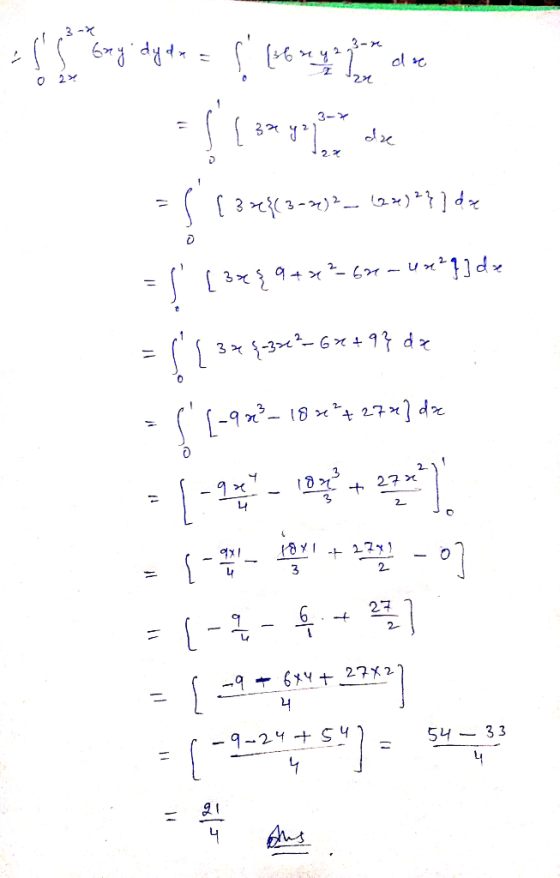 = ∫₀¹ ∫₂ₓ^{3-x} 6xy dy dx = ∫₀¹ [36 x y²/2]₂ₓ^{3-x} dx
= ∫₀¹ [3x y²]₂ₓ^{3-x} dx
= ∫₀¹ [3x{(3-x)² - (2x)²}] dx
= ∫₀¹ [3x{9 + x² - 6x - 4x²}] dx
= ∫₀¹ [3x{-3x² - 6x + 9} dx
= ∫₀¹ [-9x³ - 18x² + 27x] dx
= [-9x⁴/4 - 18x³/3 + 27x²/2]₀¹
= [-9×1/4 - 18×1/3 + 27×1/2 - 0]
= [-9/4 - 6/1 + 27/2]
= [(-9 - 6×4 + 27×2)/4]
= [(-9-24+54)/4] = (54-33)/4
= 21/4 Ans.